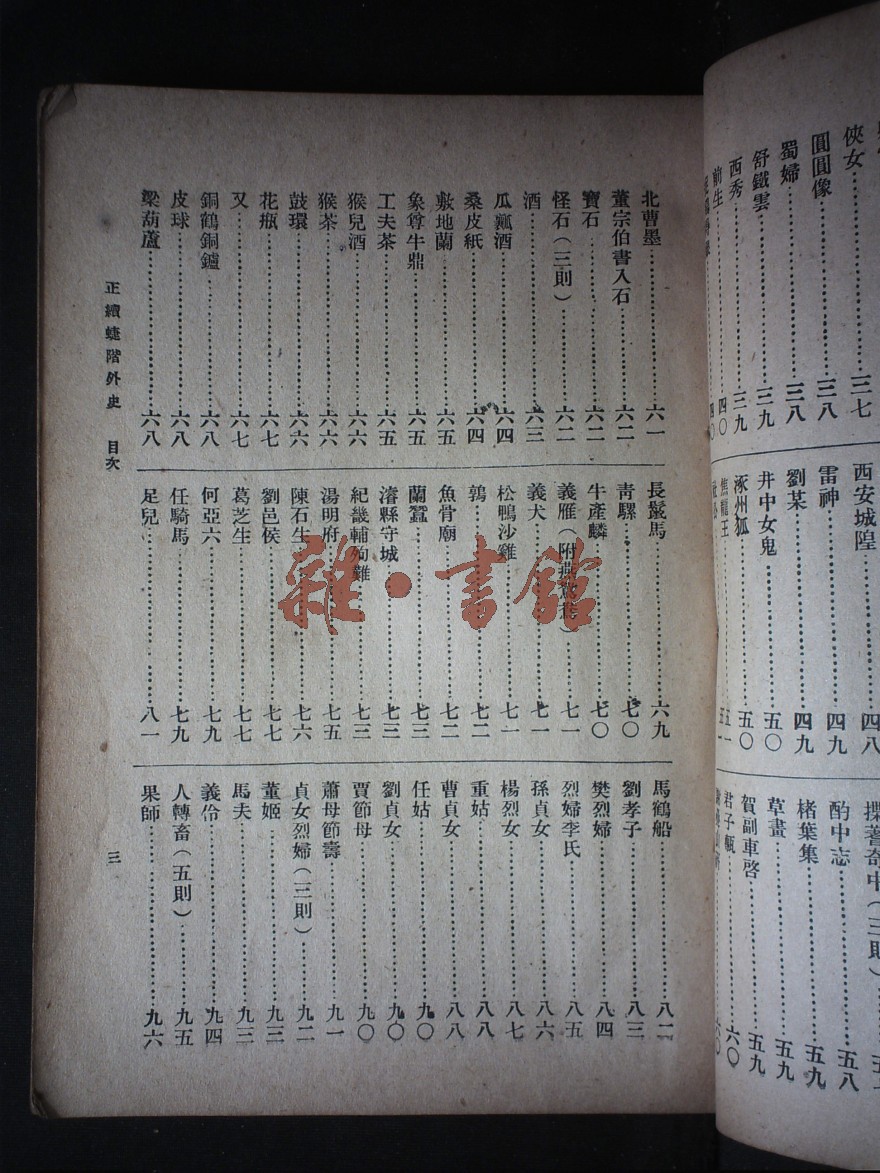 俠女……三七
圓圓像……三八
蜀婦……三八
舒鐵雲……三九
西秀……三九
前生……四〇
西安城隍……四八
雷神……四九
劉某……四九
井中女鬼……五〇
涿州狐……五〇
焦龍王……五一
揲蓍奇中(三則)
酌中志……五八
楮葉集……五九
草書……五九
賀副車啓……五九
君子甎……六〇
北曹墨……六一
董宗伯書入石……六二
寶石……六二
怪石(三則)……六二
酒……六三
瓜瓤酒……六四
桑皮紙……六四
敷地蘭……六五
象尊牛鼎……六五
工夫茶……六五
猴兒酒……六六
猴茶……六六
鼓環……六六
花瓶……六七
又……六七
銅鶴銅鑪……六八
皮球……六八
梁葫蘆……六八
長鬣馬……六九
青騾……七〇
牛產麟……七〇
義雁(附燕鴛鴦)……七一
義犬……七一
松鴨沙雞……七一
鶉……七二
魚骨廟……七二
蘭蠶……七三
濬縣守城……七三
紀畿輔殉難……七三
湯明府……七五
陳石生……七六
劉邑侯……七七
葛芝生……七七
何亞六……七九
任騎馬……七九
足兒……八一
馬鶴船……八二
劉孝子……八三
樊烈婦……八四
烈婦李氏……八五
孫貞女……八六
楊烈女……八七
重姑……八八
曹貞女……八八
任姑……九〇
劉貞女……九〇
賈節母……九〇
蕭母節壽……九一
貞女烈婦(三則)……九二
董姬……九三
馬夫……九三
義伶……九四
人轉畜(五則)……九五
果師……九六
正續蜨階外史 目次
三
雜·書館